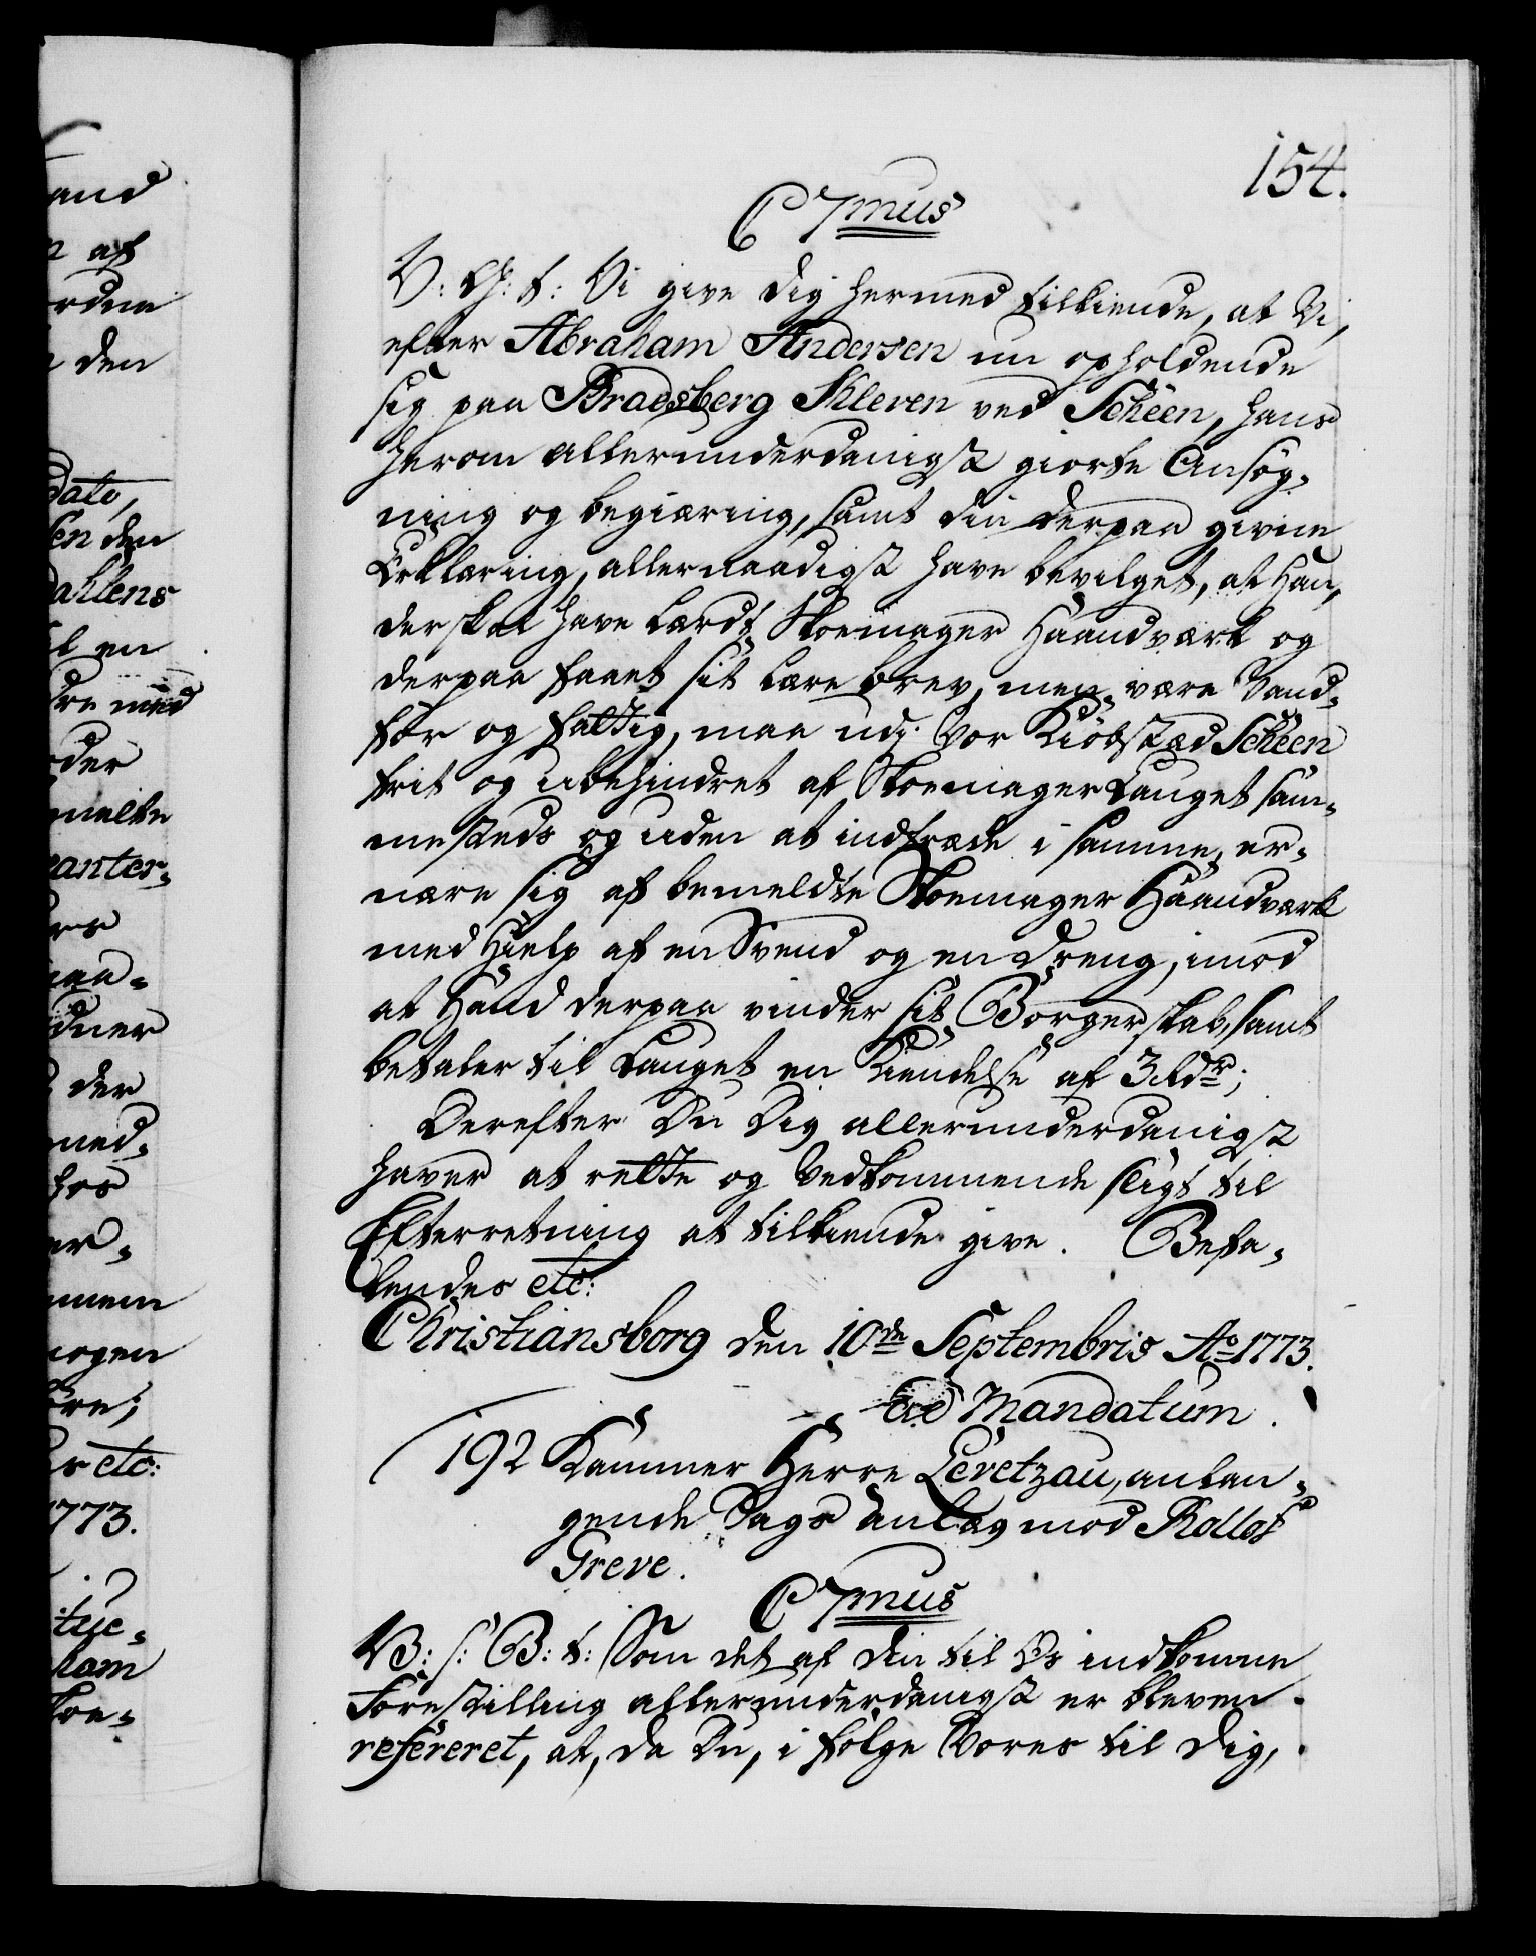 154.
C 7mus
V: G: t: Vi give dig hermed tilkiende, at Vi,
efter Abraham Andersen nu opholdende
sig paa Bradsberg Kleven ved Scheen, hans
herom allerunderdanigst giorte Ansøg-
ning og begiæring, samt din derpaa givne
Erklæring, allernaadigst have bevilget, at Han,
der skal have lærdt Skoemager Haandværk og
derpaa faaet sit Lære brev, men være Vand-
før og fattig, maa udj Vor Kiøbstæd Scheen
frit og ubehindret af Skoemager Lauget sam-
mesteds og uden at indtræde i samme, er-
nære sig af bemeldte Skoemager Haandværk
med Hielp af en Svend og en Dreng, imod
at Hand derpaa vinder sit Borgerskab, samt
betaler til Lauget en Kiendelse af 3 Rdr;
Derefter Du Dig allerunderdanigst
haver at rette og Vedkommende sligt til
Efterretning at tilkiende give. Befa-
lendes etc:
Christiansborg den 10de Septembris Ao 1773.
ad Mandatum.
192 Kammer Herre Levetzau, anlan-
gende Sags Anlæg mod Rollof
Greve.
C 7mus
V: s: B: t: Som det af din til Os indkomne
Forestilling allerunderdanigst er bleven
refereret, at, da Du, i følge Vores til dig,
and
af
den
dato,
en den
ahlens
en
med
der
meldte
anter-
dner
der
med-
hos
er-
ogen
etc:
1773.
tue-
ham